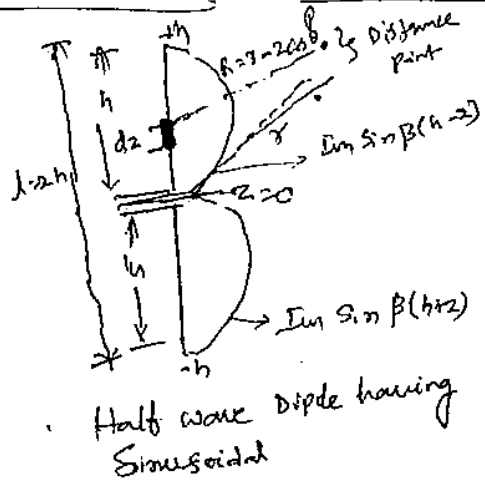 +h
R=r-zcosθ
Distance
point
h
dz
r
Im Sin β(h-z)
l=2h
z=0
h
Im Sin β(h+z)
-h
Half wave Dipole having
Sinusoidal